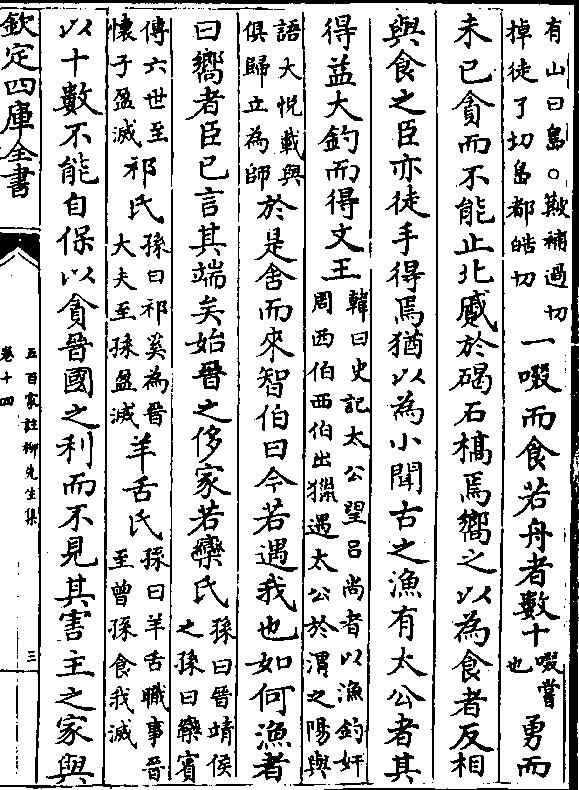 有山曰島○簸補過切
掉徒了切島都皓切
一啜而食若舟者數十
啜嘗
也
勇而
未已貪而不能止北蹙於碣石槁焉嚮之以為食者反相
與食之臣亦徒手得焉猶以為小聞古之漁有太公者其
得益大釣而得文王
韓曰史記太公望呂尚者以漁釣奸
周西伯西伯出獵遇太公於渭之陽與
語大悅載與
俱歸立為師
於是舍而來智伯曰今若遇我也如何漁者
曰嚮者臣已言其端矣始晉之侈家若欒氏
孫曰晉靖侯
之孫曰欒賓
傳六世至
懷子盈滅
祁氏
孫曰祁奚為晉
大夫至孫盈滅
羊舌氏
孫曰羊舌職事晉
至曾孫食我滅
以十數不能自保以貪晉國之利而不見其害主之家與
欽定四庫全書
五百家註柳先生集
卷十四
三